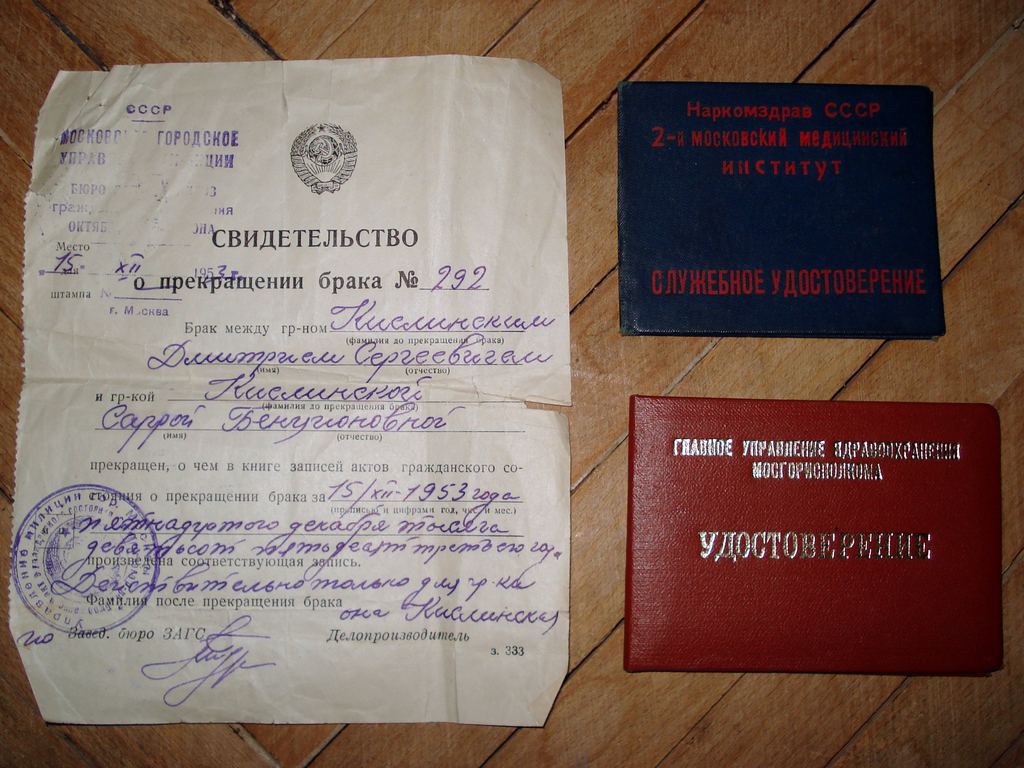 СССР
ГОРОДСКОЕ
УПРАВ
БЮРО
Место
"15" XII 1953 г.
штампа №
г. Москва
СВИДЕТЕЛЬСТВО
о прекращении брака № 292
Брак между гр-ном Кислинским
(фамилия до прекращения брака)
Дмитрием Сергеевичем
(имя) (отчество)
и гр-кой Кислинской
(фамилия до прекращения брака)
Саррой Бенционовной
(имя) (отчество)
прекращен, о чем в книге записей актов гражданского со-
стояния о прекращении брака за 15/XII-1953 года
(прописью и цифрами год, число и мес.)
пятнадцатого декабря тысяча
девятьсот пятьдесят третьего года
произведена соответствующая запись.
Действительно только для гр-ки
Фамилия после прекращения брака
она Кислинская
Завед. бюро ЗАГС Делопроизводитель
з. 333
Наркомздрав СССР
2-й московский медицинский
институт
СЛУЖЕБНОЕ УДОСТОВЕРЕНИЕ
ГЛАВНОЕ УПРАВЛЕНИЕ ЗДРАВООХРАНЕНИЯ
МОСГОРИСПОЛКОМА
УДОСТОВЕРЕНИЕ